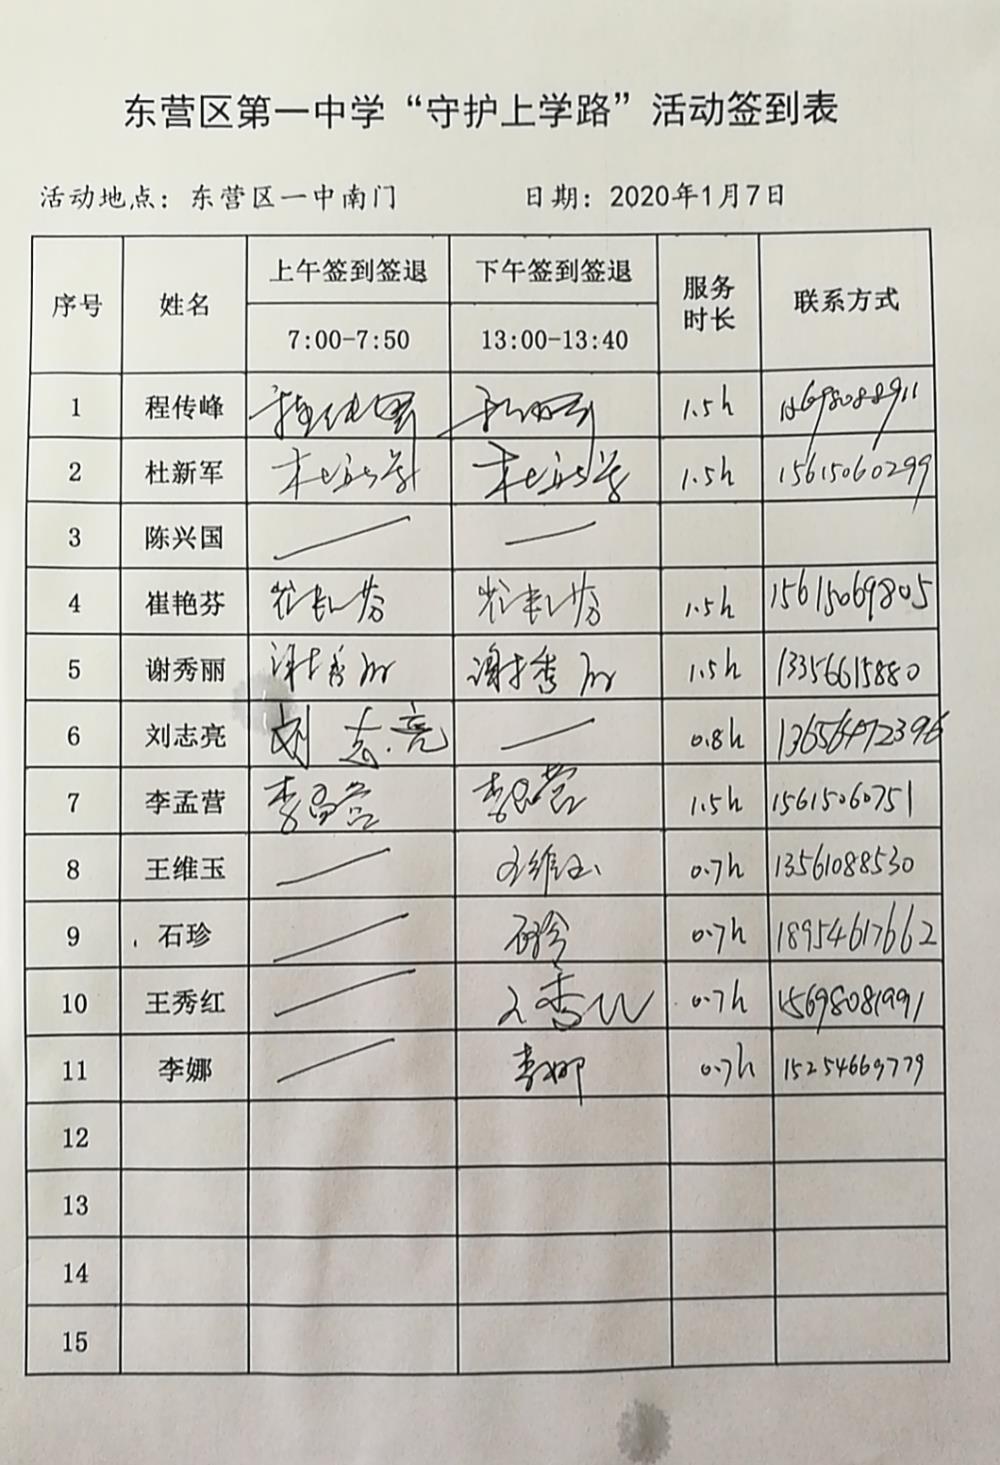 东营区第一中学“守护上学路”活动签到表
活动地点：东营区一中南门 日期：2020年1月7日
序号 姓名 上午签到签退 下午签到签退 服务时长 联系方式
7:00-7:50 13:00-13:40
1 程传峰 程传峰 1.5h 15698088911
2 杜新军 杜新军 杜新军 1.5h 15615060299
3 陈兴国 — —
4 崔艳芬 崔艳芬 崔艳芬 1.5h 15615069805
5 谢秀丽 谢秀丽 谢秀丽 1.5h 13356615880
6 刘志亮 刘志亮 — 0.8h 13656472396
7 李孟营 李孟营 李孟营 1.5h 15615060751
8 王维玉 — 王维玉 0.7h 13561088530
9 石珍 — 石珍 0.7h 18954617662
10 王秀红 — 王秀红 0.7h 15698081991
11 李娜 — 李娜 0.7h 15254669779
12
13
14
15